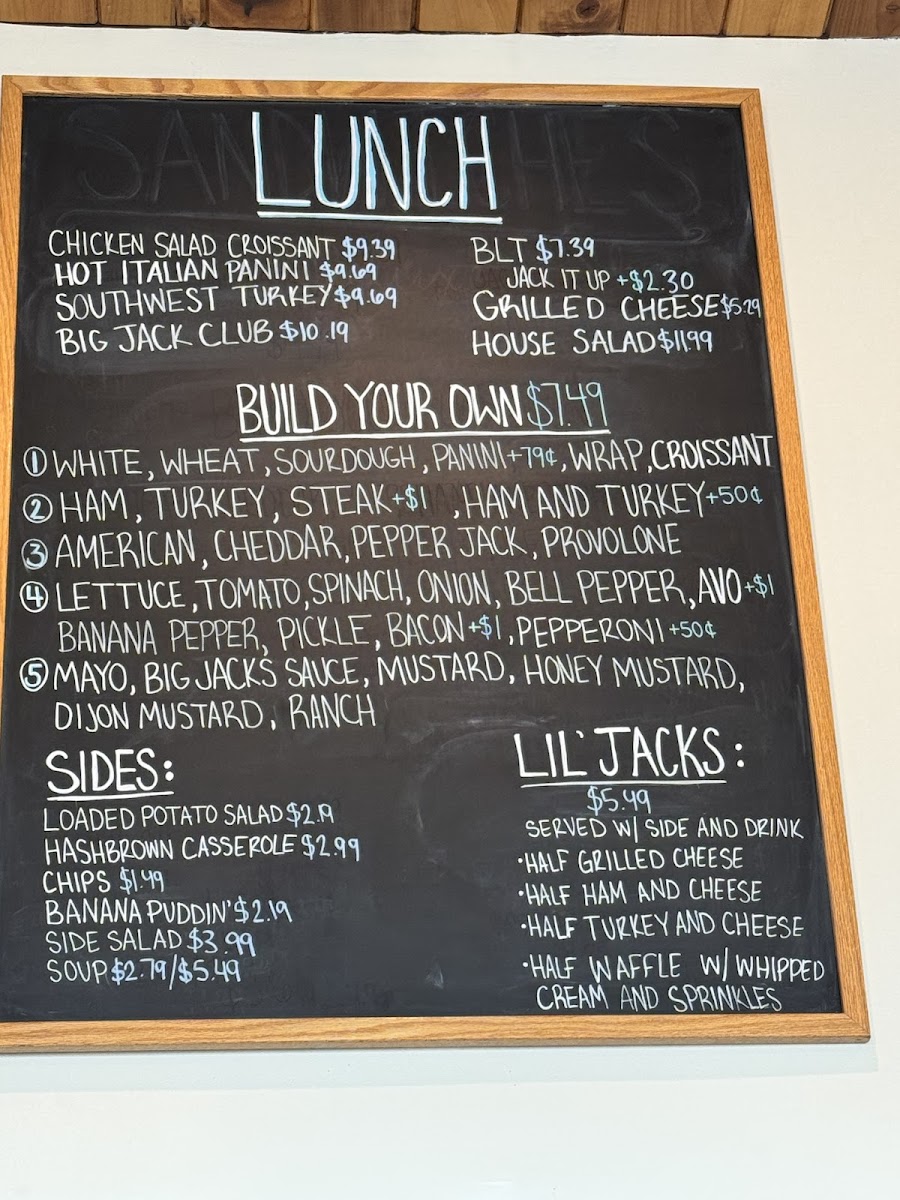 LUNCH
CHICKEN SALAD CROISSANT $9.39
HOT ITALIAN PANINI $9.69
SOUTHWEST TURKEY $9.69
BIG JACK CLUB $10.19
BLT $7.39
JACK IT UP +$2.30
GRILLED CHEESE $5.29
HOUSE SALAD $11.99
BUILD YOUR OWN $7.49
① WHITE, WHEAT, SOURDOUGH, PANINI +79¢, WRAP, CROISSANT
② HAM, TURKEY, STEAK +$1, HAM AND TURKEY +50¢
③ AMERICAN, CHEDDAR, PEPPER JACK, PROVOLONE
④ LETTUCE, TOMATO, SPINACH, ONION, BELL PEPPER, AVO +$1
BANANA PEPPER, PICKLE, BACON +$1, PEPPERONI +50¢
⑤ MAYO, BIG JACKS SAUCE, MUSTARD, HONEY MUSTARD,
DIJON MUSTARD, RANCH
SIDES:
LOADED POTATO SALAD $2.19
HASHBROWN CASSEROLE $2.99
CHIPS $1.49
BANANA PUDDIN' $2.19
SIDE SALAD $3.99
SOUP $2.79/$5.49
LIL' JACKS:
$5.49
SERVED W/ SIDE AND DRINK
•HALF GRILLED CHEESE
•HALF HAM AND CHEESE
•HALF TURKEY AND CHEESE
•HALF WAFFLE W/ WHIPPED
CREAM AND SPRINKLES